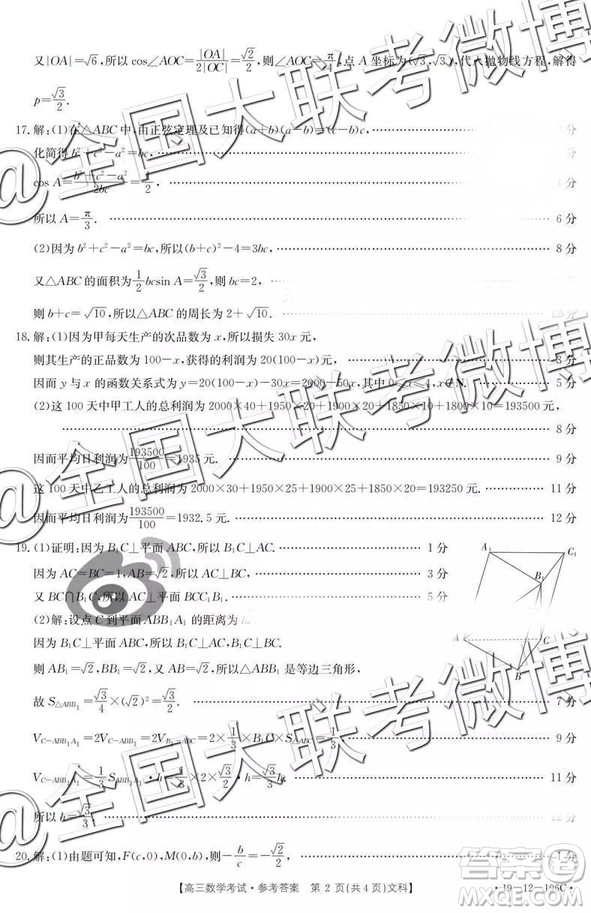 又|OA|=√6,所以 cos∠AOC=|OA|/2|OC|=√2/2,则∠AOC=π/4,点 A 坐标为(√3,√3),代入抛物线方程,解得
p=√3/2.
17.解:(1)在△ABC 中,由正弦定理及已知得(a+b)(a-b)=(c-b)c, 分
化简得 b²+c²-a²=bc, 分
cos A=(b²+c²-a²)/2bc=1/2, 4 分
所以 A=π/3. 6 分
(2)因为 b²+c²-a²=bc,所以(b+c)²-4=3bc, 8 分
又△ABC 的面积为1/2 bcsin A=√3/2,则 bc=2,
则 b+c=√10,所以△ABC 的周长为 2+√10.
18.解:(1)因为甲每天生产的次品数为 x,所以损失 30x 元,
则其生产的正品数为 100-x,获得的利润为 20(100-x)元,
因而 y 与 x 的函数关系式为 y=20(100-x)-30x=2000-50x,其中 0≤x≤4,x∈N. 5 分
(2)这 100 天中甲工人的总利润为 2000×40+1950×20+1900×20+1850×10+1800×10=193500 元,
8 分
因而平均日利润为193500/100=1935 元. 9 分
这 100 天中乙工人的总利润为 2000×30+1950×25+1900×25+1850×20=193250 元, 11 分
因而平均日利润为193500/100=1932.5 元. 12 分
19.(1)证明:因为 B₁C⊥平面 ABC,所以 B₁C⊥AC. 1 分
因为 AC=BC=1,AB=√2,所以 AC⊥BC, 3 分
又 BC∩B₁C,所以 AC⊥平面 BCC₁B₁. 5 分
(2)解:设点 C 到平面 ABB₁A₁ 的距离为 h
因为 B₁C⊥平面 ABC,所以 B₁C⊥AC,B₁C⊥BC,
则 AB₁=√2,BB₁=√2,又 AB=√2,所以△ABB₁ 是等边三角形,
故 S△ABB₁=√3/4×(√2)²=√3/2. 7 分
V C-ABB₁A₁=2V C-ABB₁=2×1/3×B₁C×S△ABC=1/3, 9 分
V C-ABB₁A₁=1/3 S ABB₁A₁·h=1/3×2×√3/2 h=√3/3 h, 11 分
所以 h=√3/3. 12 分
A₁
C₁
B₁
A
C
B
20.解:(1)由题可知,F(c,0),M(0,b),则-b/c=-√2/2, 1 分
【高三数学考试·参考答案 第 2 页(共 4 页)文科】
·19-12-196C·
@全国大联考微博
@全国大联考微博
@全国大联考微博